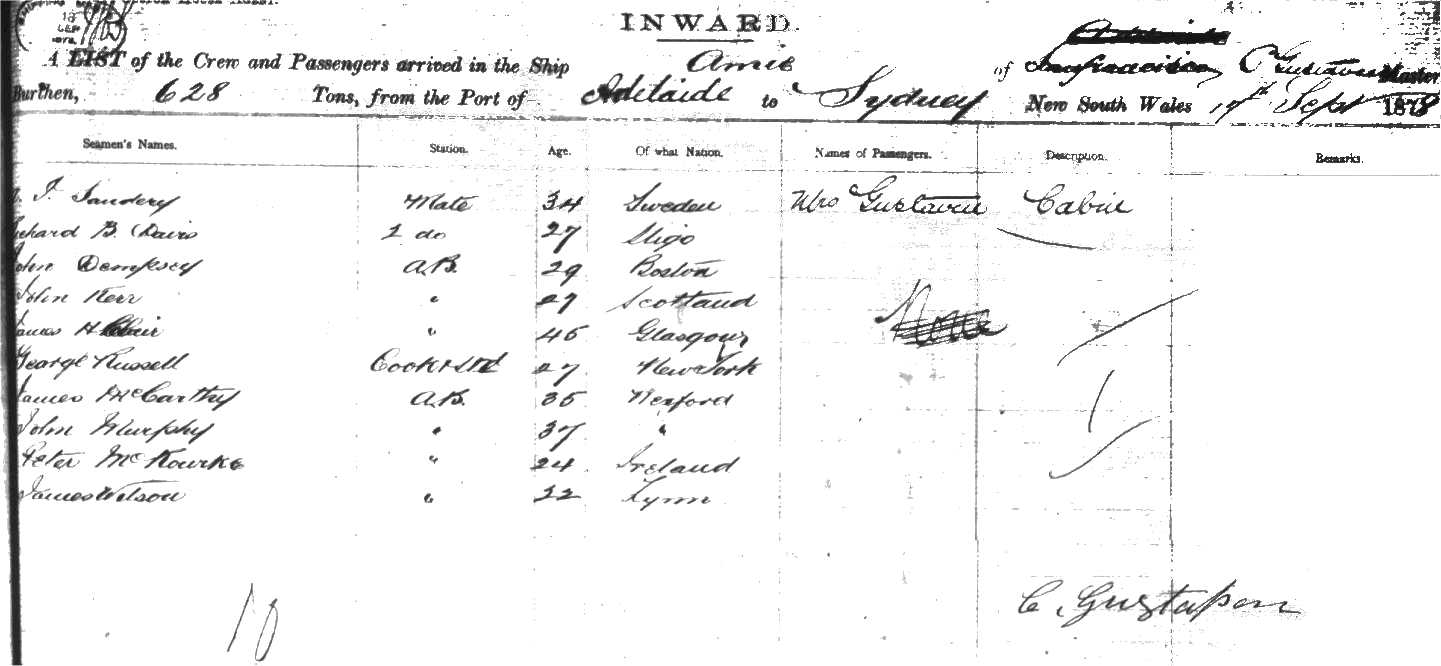 INWARD.
A LIST of the Crew and Passengers arrived in the Ship Amie of San Francisco, C Gustavson Master
Burthen, 628 Tons, from the Port of Adelaide to Sydney New South Wales 17th Sept 1878
Seamen's Names. Station. Age. Of what Nation. Names of Passengers. Description. Remarks.
Mate 34 Sweden Mrs Gustavson Cabin
B. Davis 2 do 27 Sligo
John Dempsey A.B. 29 Boston
John Kerr " 27 Scotland
James H Blair " 45 Glasgow
George Russell Cook & Std 27 New York
James McCarthy A.B. 35 Wexford
John Murphy " 37 "
Peter McRourke " 24 Ireland
James Wilson " 22 Lynn
10
C. Gustafson